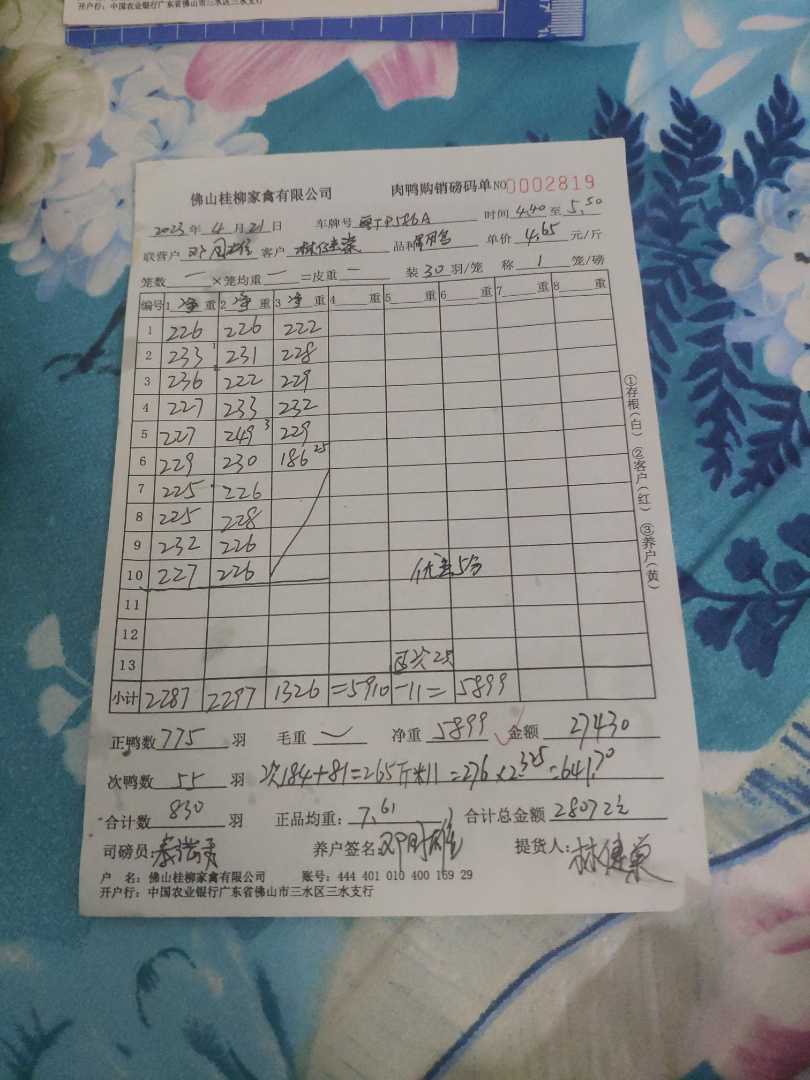 开户行：中国农业银行广东省佛山市三水区三水支行
佛山桂柳家禽有限公司 肉鸭购销磅码单 NO 0002819
2023年4月21日 车牌号 粤JP586A 时间 4.40 至 5.50
联营户 客户 品种 单价 4.65 元/斤
笼数 一 ×笼均重 一 =皮重 一 装 30 羽/笼 称 1 笼/磅
编号 1 净 重 2 净 重 3 净 重 4 重 5 重 6 重 7 重 8 重
1 226 226 222
2 233 1 231 228
3 236 222 229
4 227 233 232
5 227 249 3 229
6 229 230 186 25
7 225 226
8 225 228
9 232 226
10 227 226 5分
11
12
13 次25
小计 2287 2297 1326 =5910 -11= 5899
①存根（白） ②客户（红） ③养户（黄）
正鸭数 775 羽 毛重 净重 5899 金额 27430
次鸭数 55 羽 次184+81=265斤+11=276×2.325=641.70
合计数 830 羽 正品均重： 7.61 合计总金额 28072
司磅员： 养户签名： 提货人：
户 名：佛山桂柳家禽有限公司 账号：444 401 010 400 169 29
开户行：中国农业银行广东省佛山市三水区三水支行